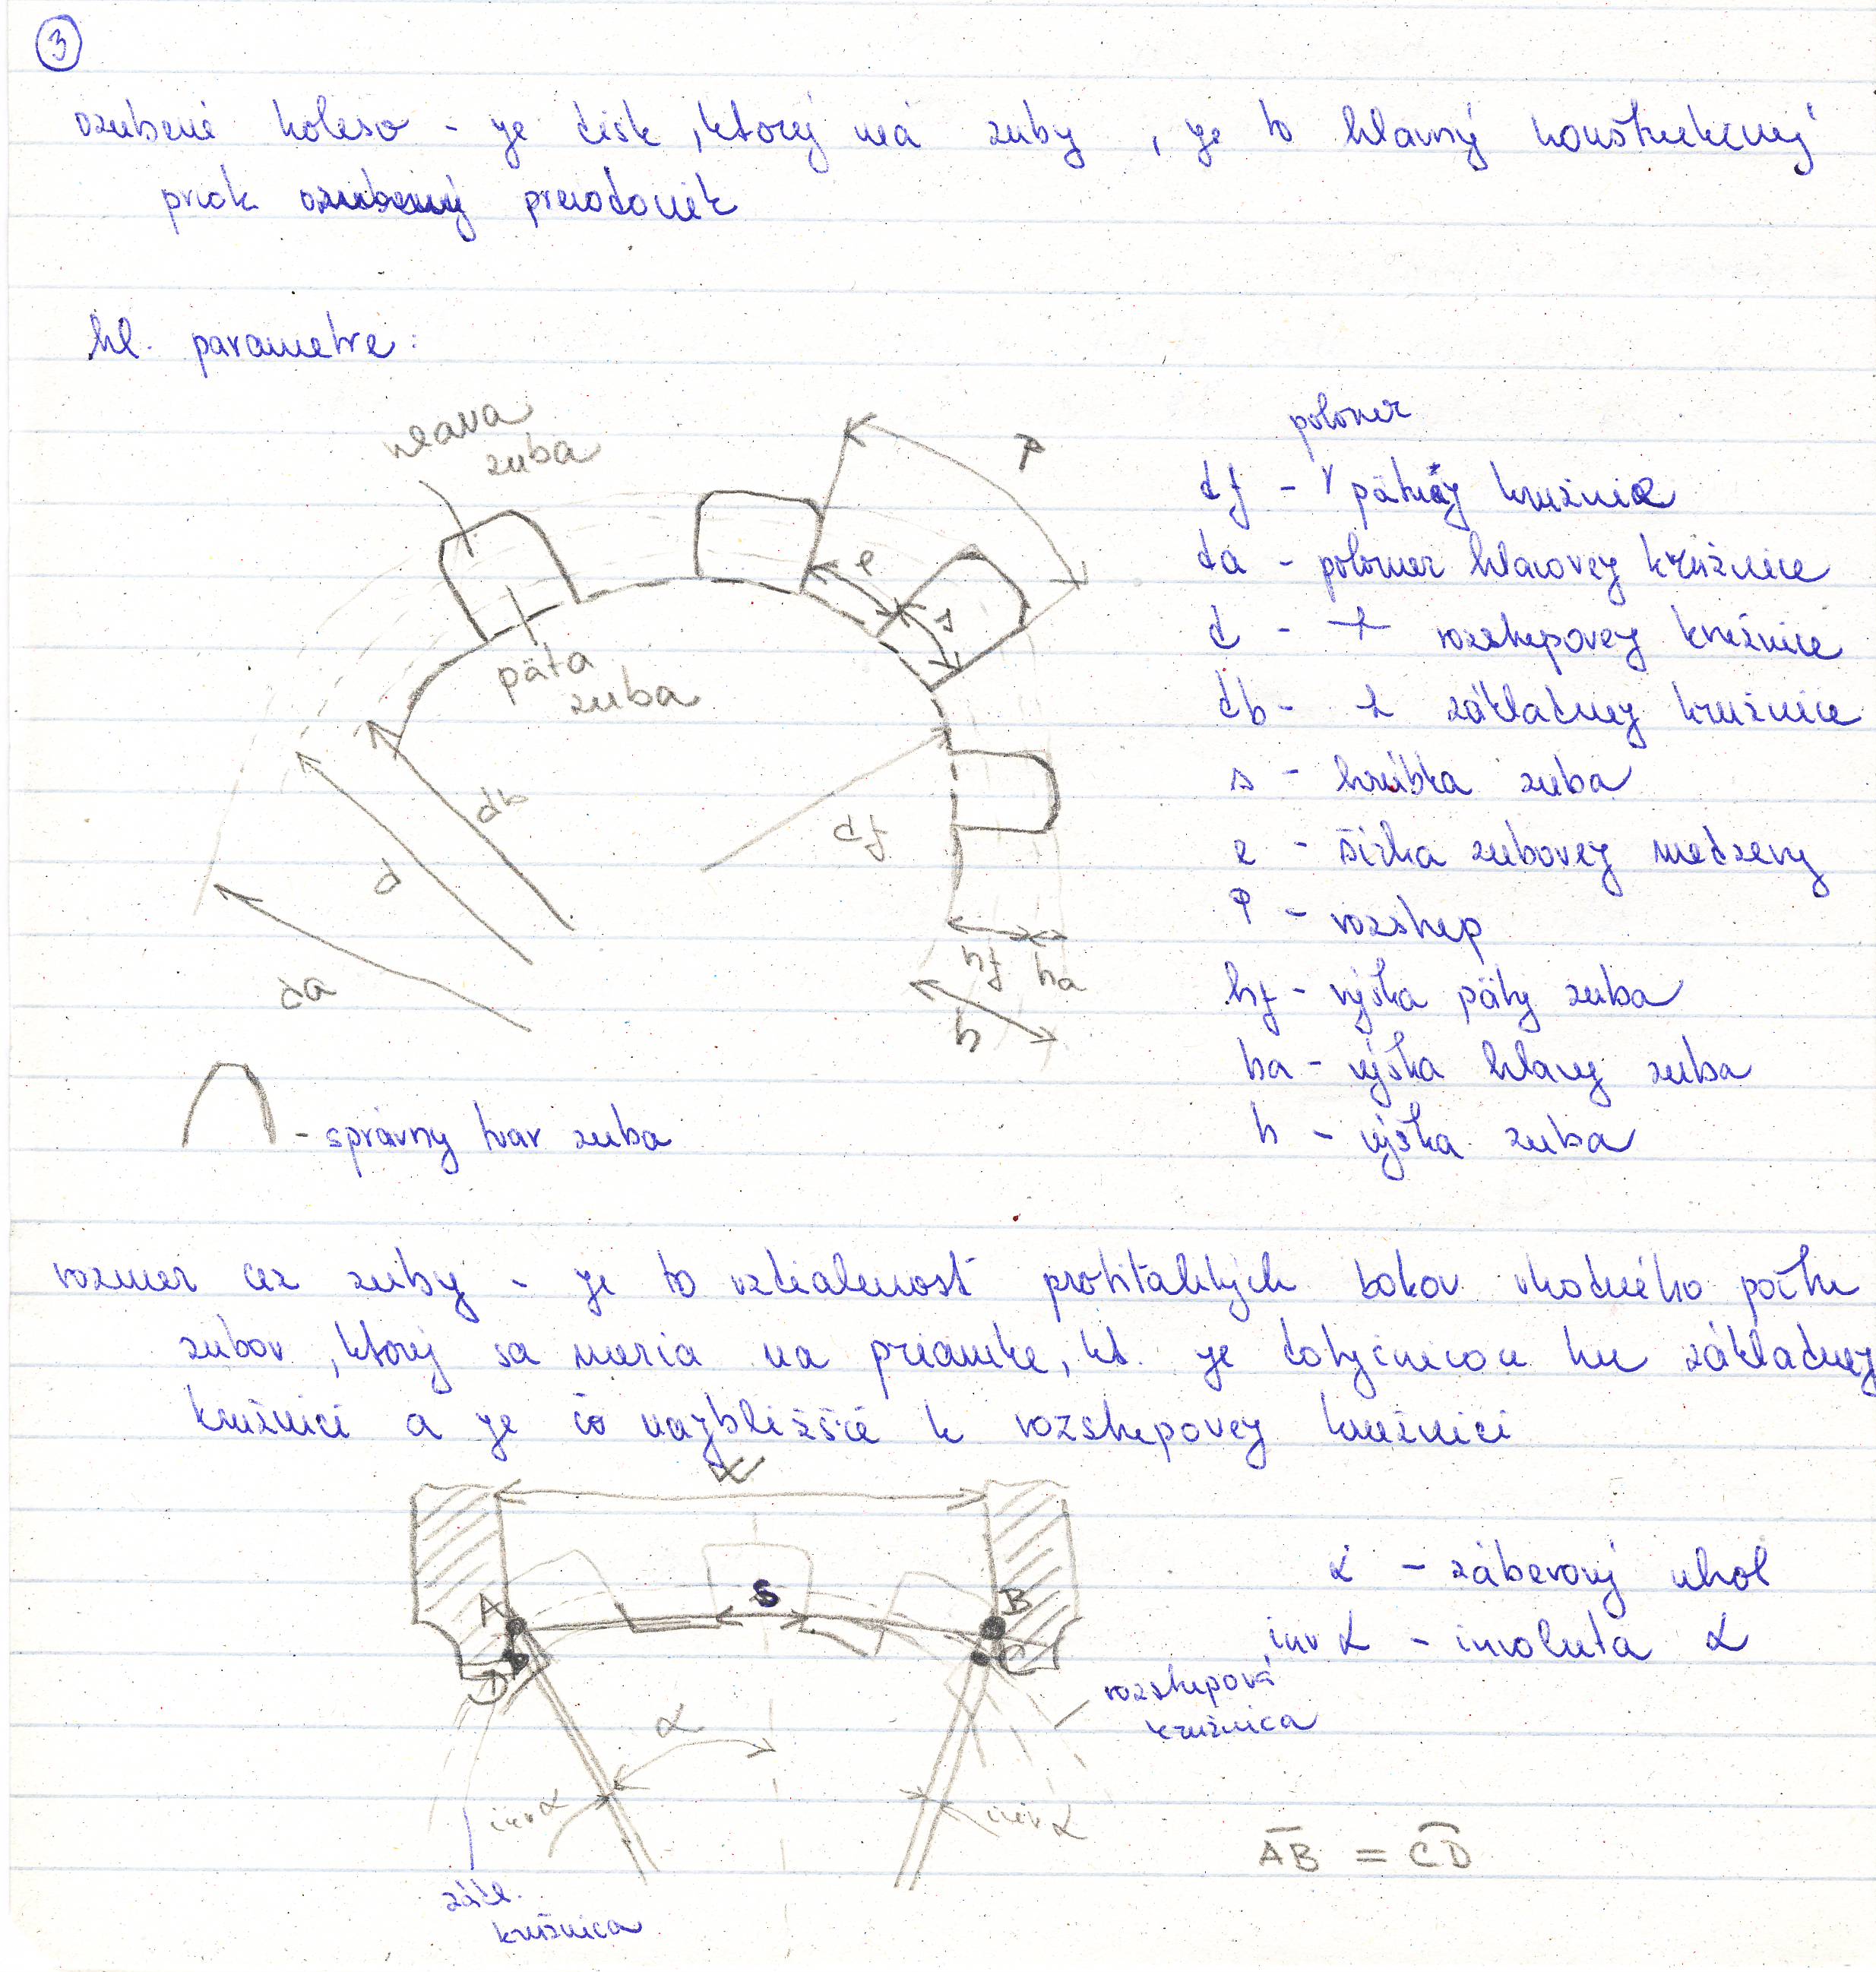 3
ozubené koleso - je disk, ktorý má zuby, je to hlavný konštrukčný
prvok ozubený prevodoviek
hl. parametre:
hlava
zuba
päta
zuba
P
e
s
db
d
da
df
hf
ha
h
polomer
df - pätnej kružnice
da - polomer hlavovej kružnice
d - rozstupovej kružnice
db - základnej kružnice
s - hrúbka zuba
e - šírka zubovej medzery
P - rozstup
hf - výška päty zuba
ha - výška hlavy zuba
h - výška zuba
- správny tvar zuba
rozmer cez zuby - je to vzdialenosť protiľahlých bokov vhodného počtu
zubov, ktorý sa meria na priamke, kt. je dotyčnicou ku základnej
kružnici a je čo najbližšie k rozstupovej kružnici
S
A
B
C
D
α
inv α
inv α
zákl.
kružnica
rozstupová
kružnica
α - záberový uhol
inv α - involuta α
AB = CD